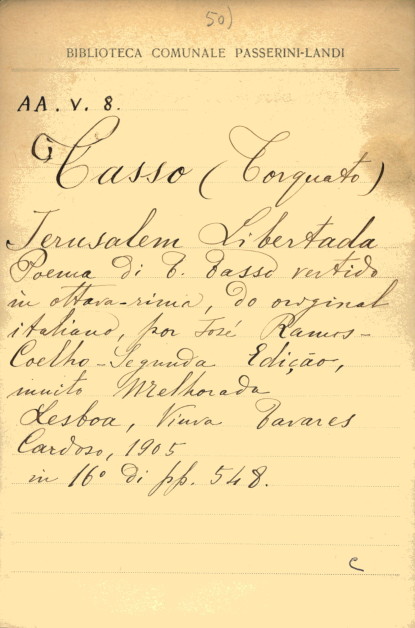 50)
BIBLIOTECA COMUNALE PASSERINI-LANDI
AA. V. 8.
G
Tasso (Torquato)
Jerusalem Libertada
Poema di T. Tasso vertido
in ottava-rima, do original
italiano, por José Ramos-
Coelho - Segunda Edição,
muito Melhorada
Lesboa, Viuva Tavares
Cardoso, 1905
in 16° di pp. 548.
c